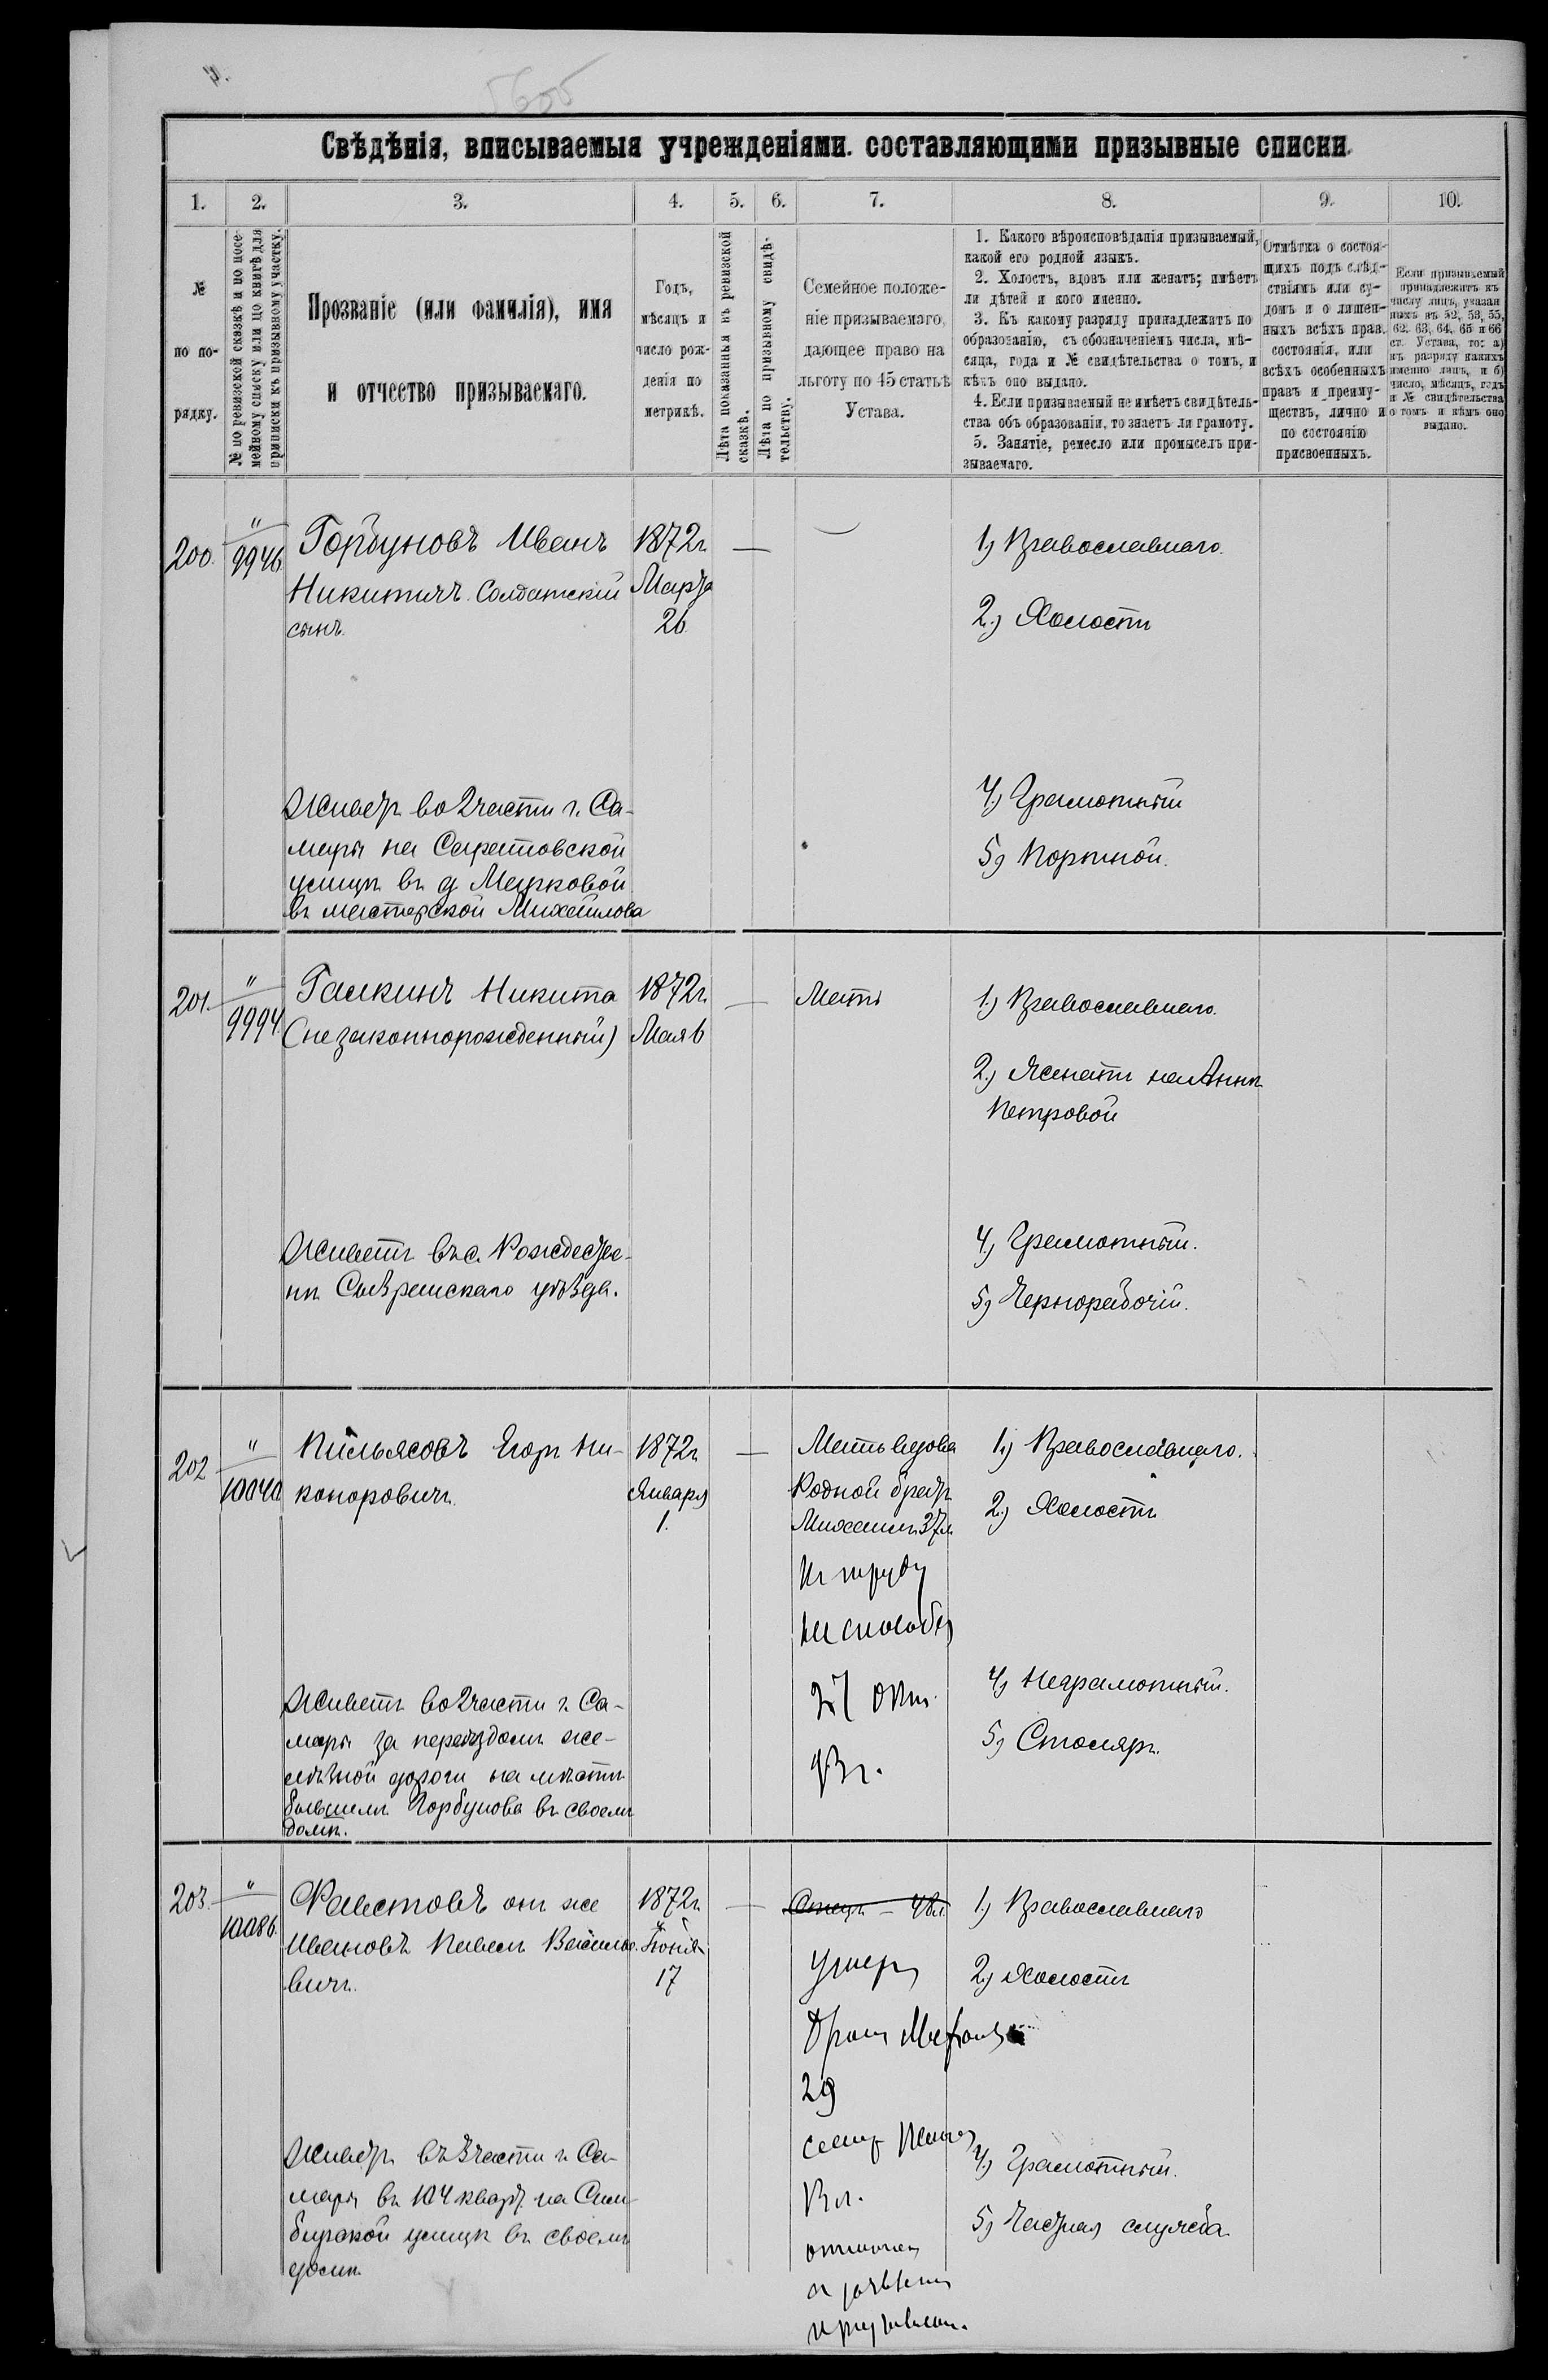 Свѣдѣнія, вписываемыя учрежденіями. составляющими призывные списки.
1. 2. 3. 4. 5. 6. 7. 8. 9. 10.
№
по по-
рядку.
№ по ревизской сказкѣ и по посе-
мейному списку или по книгѣ для
приписки къ призывному участку.
Прозваніе (или фамилія), имя
и отчество призываемаго.
Годъ,
мѣсяцъ и
число рож-
денія по
метрикѣ.
Лѣта показанныя въ ревизской
сказкѣ.
Лѣта по призывному свидѣ-
тельству.
Семейное положе-
ніе призываемаго,
дающее право на
льготу по 45 статьѣ
Устава.
1. Какого вѣроисповѣданія призываемый,
какой его родной языкъ.
2. Холостъ, вдовъ или женатъ; имѣетъ
ли дѣтей и кого именно.
3. Къ какому разряду принадлежитъ по
образованію, съ обозначеніемъ числа, мѣ-
сяца, года и № свидѣтельства о томъ, и
кѣмъ оно выдано.
4. Если призываемый не имѣетъ свидѣтель-
ства объ образованіи, то знаетъ ли грамоту.
5. Занятіе, ремесло или промыселъ при-
зываемаго.
Отмѣтка о состоя-
щихъ подъ слѣд-
ствіямъ или су-
домъ и о лишен-
ныхъ всѣхъ правъ
состоянія, или
всѣхъ особенныхъ
правъ и преиму-
ществъ, лично и
по состоянію
присвоенныхъ.
Если призываемый
принадлежитъ къ
числу лицъ, указан
ныхъ въ 52, 53, 55,
62. 63, 64, 65 и 66
ст. Устава, то: а)
къ разряду какихъ
именно лицъ, и б)
число, мѣсяцъ, годъ
и № свидѣтельства
о томъ и кѣмъ оно
выдано.
200.
"
9946.
Горбуновъ Иванъ
Никитичъ. Солдатскій
сынъ.
1872 г.
Марта
26.
—
1) Православнаго.
2.) Холостъ
4.) Грамотный
5) Портной.
Живетъ во 2 части г. Са-
мары на Саратовской
улицѣ въ д. Марковой
въ мастерской Михайлова
201.
"
9994.
Галкинъ Никита
(незаконнорожденный)
1872 г.
Мая 6
—
Мать
1.) Православнаго.
2.) Женатъ на Аннѣ
Петровой
4.) Грамотный.
5) Чернорабочій.
Живетъ въ с. Рождестве-
нѣ Сызранскаго уѣзда.
202
"
10040
Пильясовъ Егоръ Ни-
коноровичъ.
1872 г.
Января
1.
—
Мать вдова
Родной братъ
Михаилъ 37 л.
Къ труду
не способенъ
27 окт.
93 г.
1.) Православнаго.
2.) Холостъ
4) Неграмотный.
5) Столяръ.
Живетъ во 2 части г. Са-
мары за переѣздомъ же-
лѣзной дороги на мѣстѣ
бывшемъ Горбунова въ своемъ
домѣ.
203.
"
10086.
он же
Ивановъ Павелъ Василье-
вичъ.
1872 г.
Іюня
17
—
Отецъ – 48 л.
умеръ
29
1.) Православнаго
2.) Холостъ
4.) Грамотный.
5) Частная служба.
Живетъ въ 3 части г. Са-
мары въ 104 кварт. на Сим-
бирской улицѣ въ своемъ
домѣ.